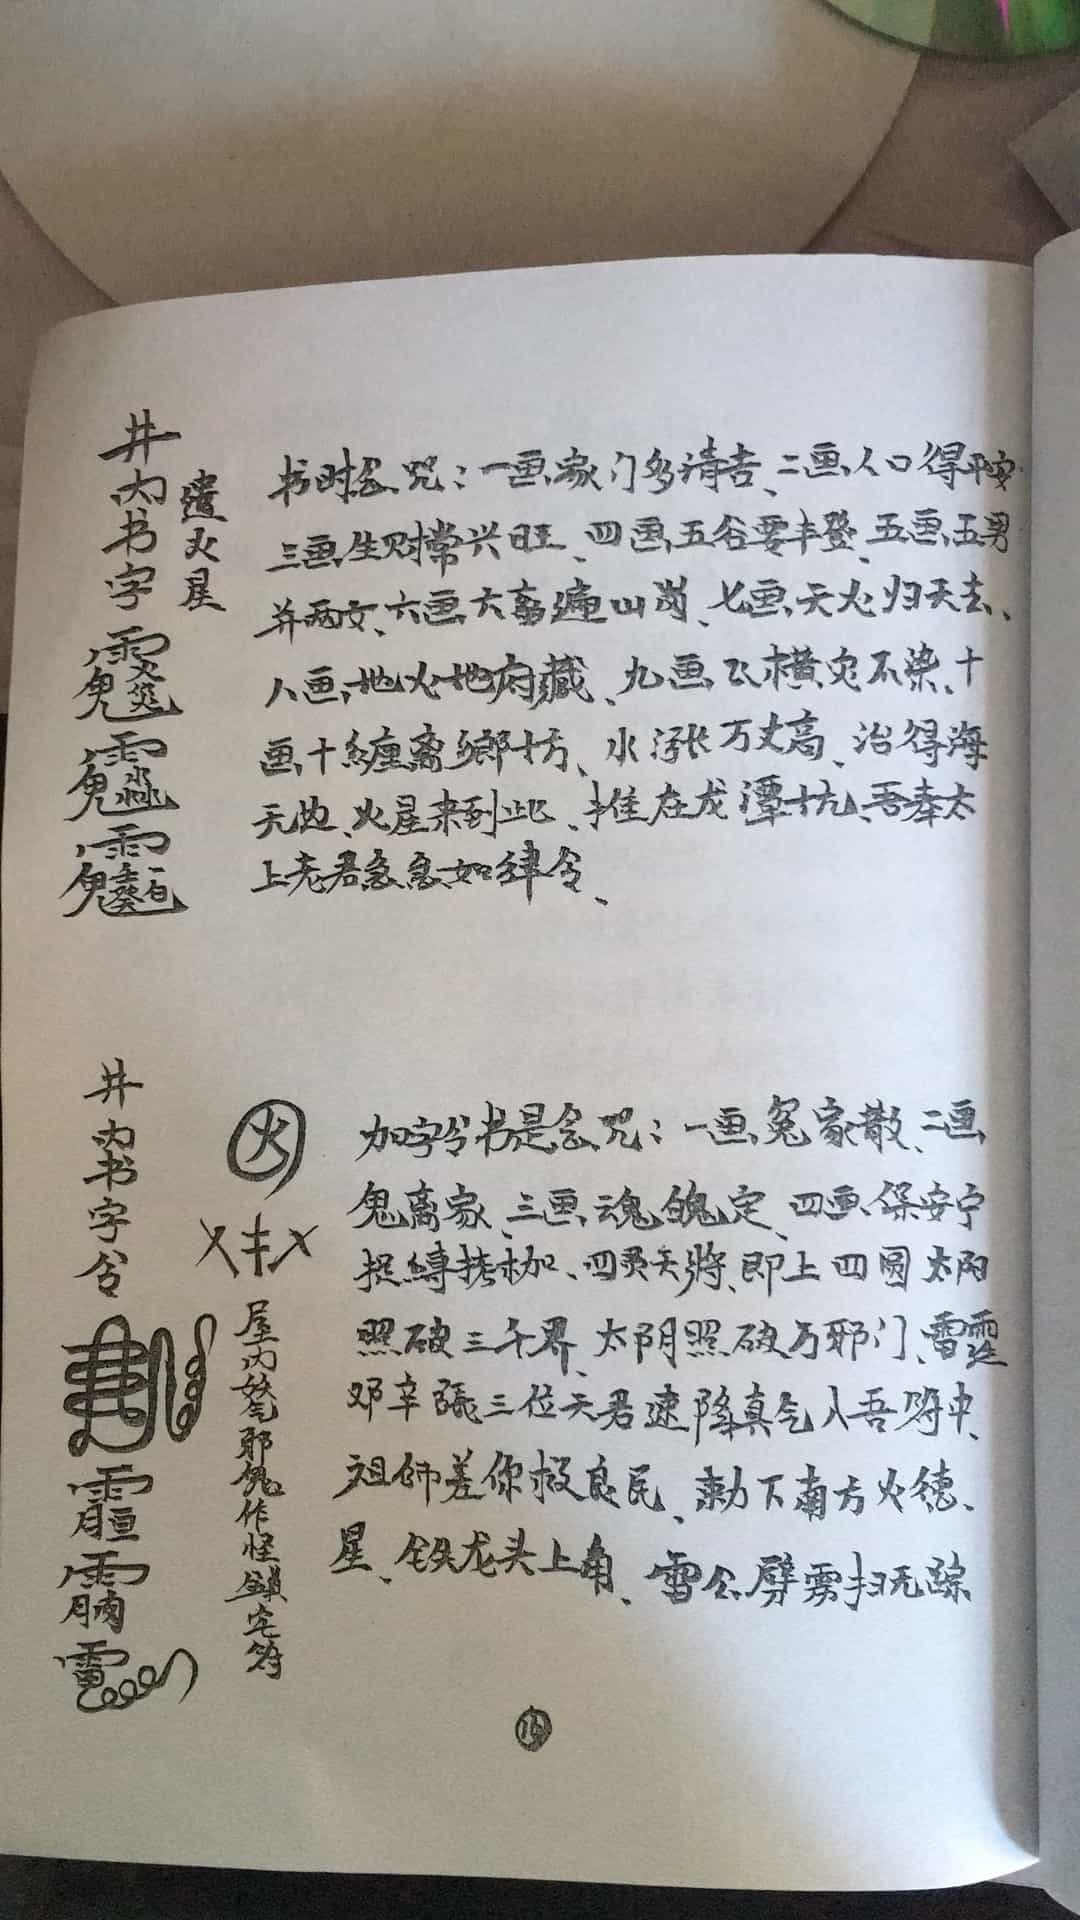 井内书字
遣火星
书时念咒：一画家门多清吉、二画人口得平安
三画生财常兴旺、四画五谷要丰登、五画五男
并两女、六画六畜遍山岗、七画天火归天去、
八画地火地府藏、九画飞横灾不染、十
画十缠离鄉坊、水涨万丈高、治得海
无边、火星来到此、推在龙潭坑、吾奉太
上老君急急如律令、
井内书字兮
火
屋内妖氣邪鬼作怪鎮宅符
加字兮书是念咒：一画冤家散、二画
鬼离家、三画魂魄定、四画保安宁
捉縛拷枷、四员天將、即上四圆太阳
照破三千界、太阴照破万邪门、雷霆
邓辛張三位天君速降真气入吾符中、
祖師差你救良民、勅下南方火德、
星、铁龙头上角、雷公劈雳扫无踪